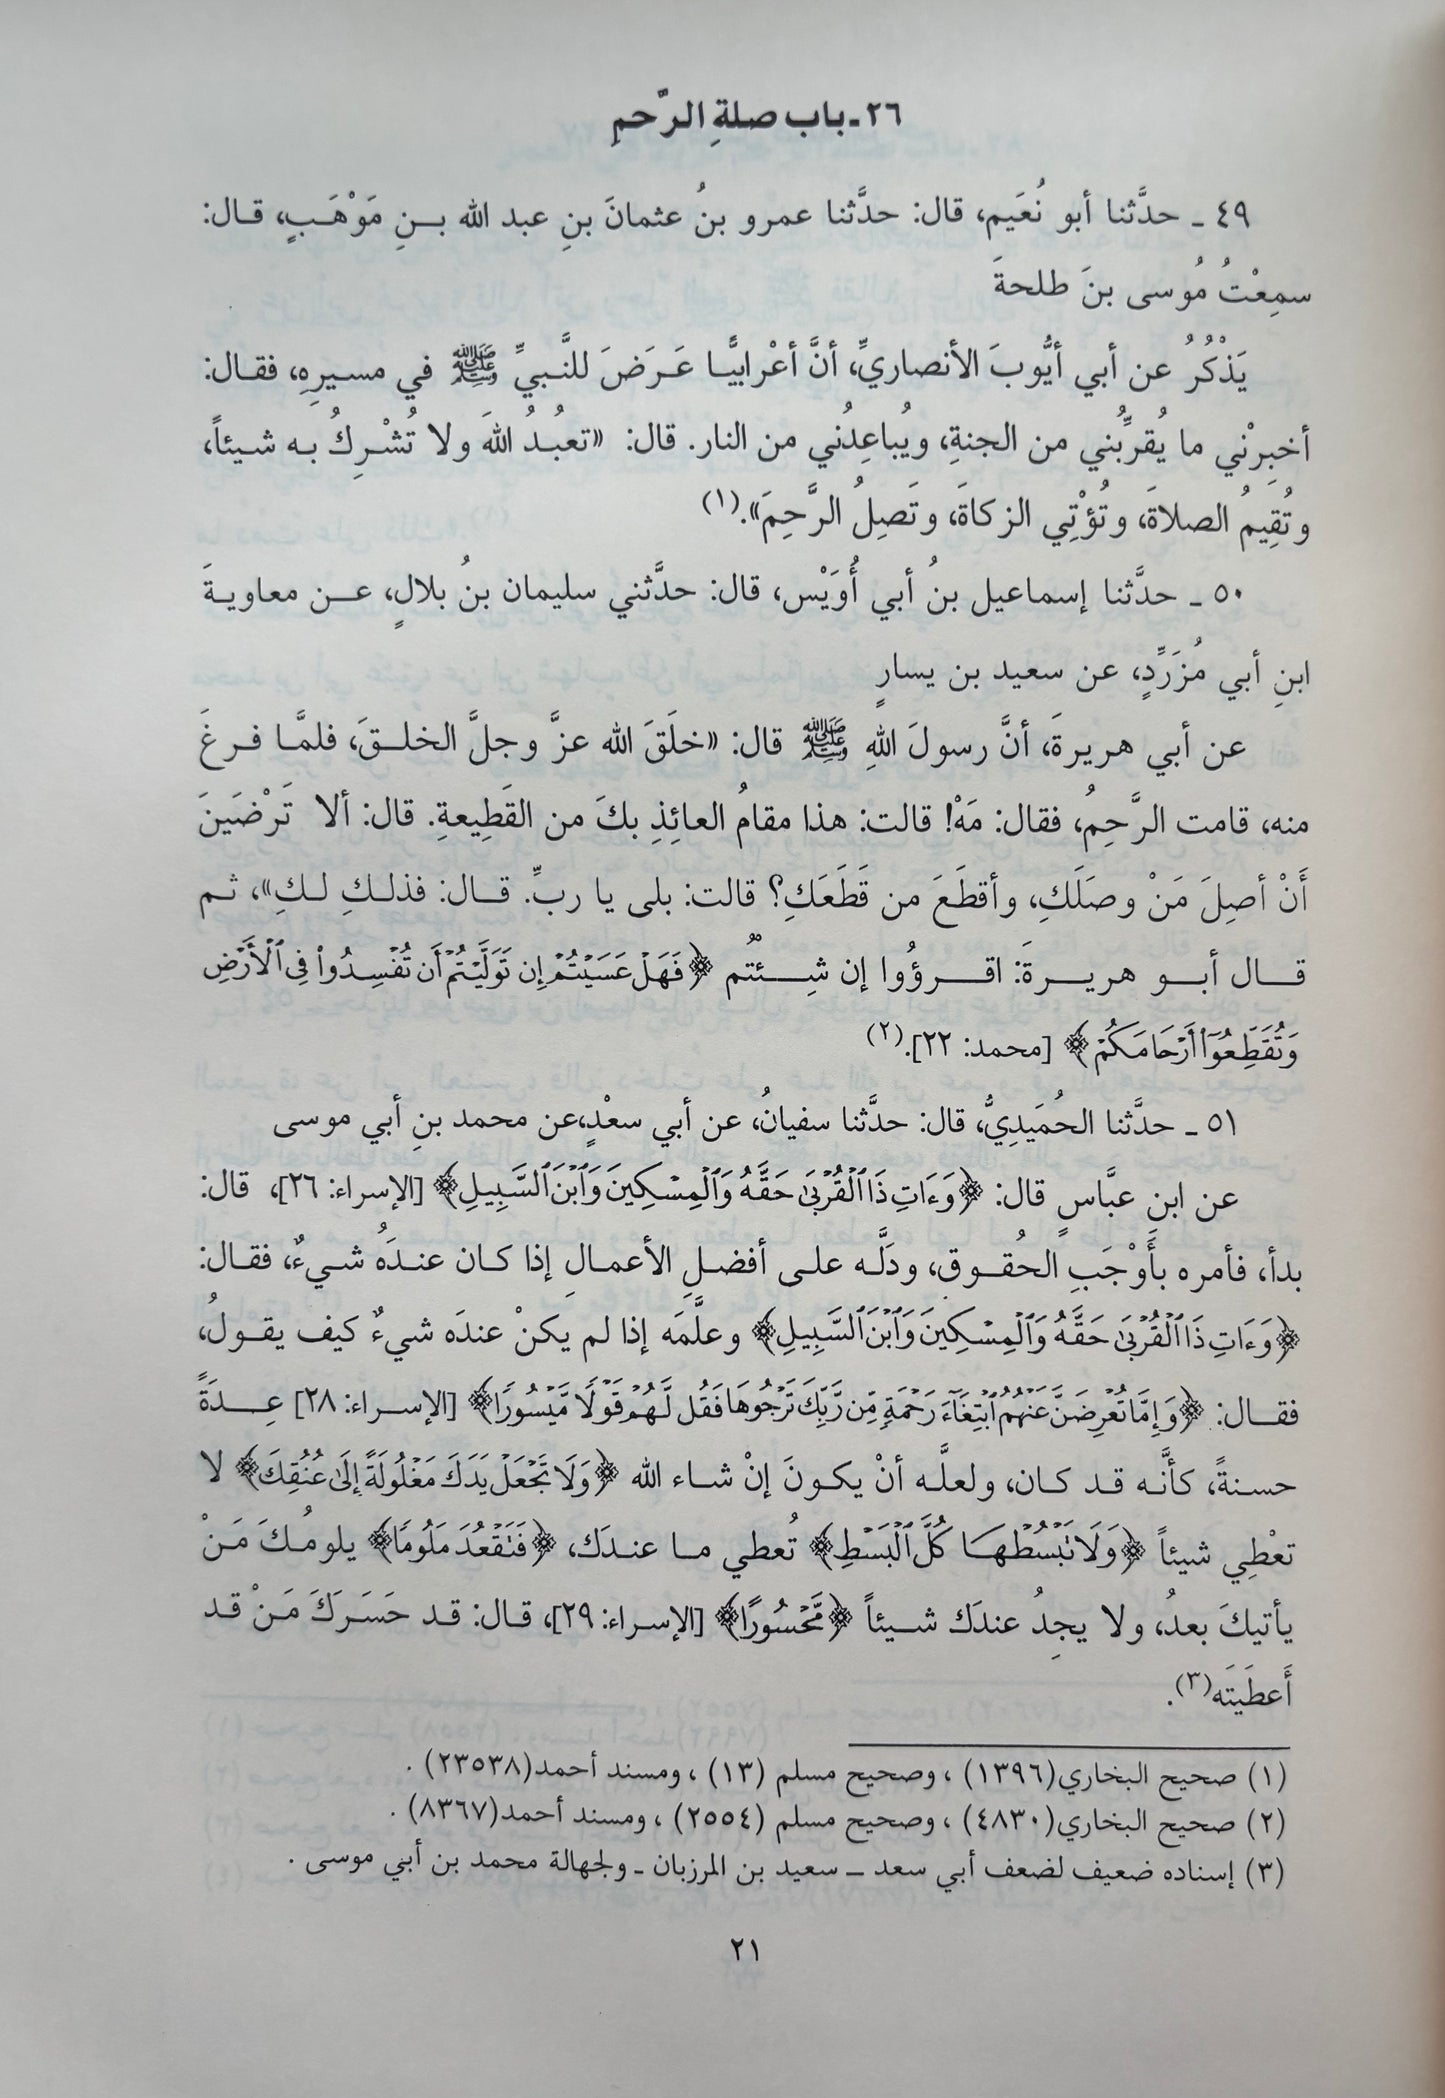 ٢٦ـ باب صلةِ الرَّحمِ
٤٩ ـ حدَّثنا أبو نُعَيم، قال: حدَّثنا عمرو بنُ عثمانَ بنِ عبد الله بـنِ مَوْهَبٍ، قـال:
سمِعْتُ مُوسى بنَ طلحةَ
يَذْكُرُ عن أبي أيُّوبَ الأنصاريِّ، أنَّ أعْرابيًّـا عَـرَضَ للنَّبيِّ ﷺ في مسيرِهِ، فقال:
أخبِرْني ما يُقرِّبُني من الجنةِ، ويُباعِدُني من النار. قال: «تعبُـدُ اللهَ ولا تُشْـرِكُ بـه شـيئاً،
وتُقِيمُ الصلاةَ، وتُؤْتِي الزكاةَ، وتَصِلُ الرَّحِمَ».(١)
٥٠ ـ حدَّثنا إسماعيل بنُ أبي أُوَيْس، قال: حدَّثني سليمان بنُ بلالٍ، عـن معاويـةَ
ابنِ أبي مُزَرِّدٍ، عن سعيد بن يسارٍ
عن أبي هريرةَ، أنَّ رسولَ اللهِ ﷺ قال: «خلَقَ الله عزَّ وجلَّ الخلـقَ، فلمَّـا فـرغَ
منه، قامت الرَّحِمُ، فقال: مَهْ! قالت: هذا مقامُ العائِذِ بكَ من القَطِيعةِ. قال: ألا تَرْضَينَ
أَنْ أصِلَ مَنْ وصَلَكِ، وأقطَعَ من قَطَعَكِ؟ قالت: بلى يا ربِّ. قـال: فذلـكِ لـكِ»، ثـم
قـال أبـو هريـرةَ: اقـرؤُوا إن شِـئتُم ﴿فَهَلۡ عَسَيۡتُمۡ إِن تَوَلَّيۡتُمۡ أَن تُفۡسِدُواْ فِي ٱلۡأَرۡضِ
وَتُقَطِّعُوٓاْ أَرۡحَامَكُمۡ﴾ [محمد: ٢٢].(٢)
٥١ ـ حدَّثنا الحُمَيدِيُّ، قال: حدَّثنا سفيانُ، عن أبي سعْدٍ،عن محمد بنِ أبي موسى
عن ابن عبَّاسٍ قال: ﴿وَءَاتِ ذَا ٱلۡقُرۡبَىٰ حَقَّهُۥ وَٱلۡمِسۡكِينَ وَٱبۡنَ ٱلسَّبِيلِ﴾ [الإسراء: ٢٦]، قال:
بدأ، فأمره بأَوْجَبِ الحُقـوق، ودَلَّـه علـى أفضـلِ الأعمـالِ إذا كـان عنـدَهُ شـيءٌ، فقـال:
﴿وَءَاتِ ذَا ٱلۡقُرۡبَىٰ حَقَّهُۥ وَٱلۡمِسۡكِينَ وَٱبۡنَ ٱلسَّبِيلِ﴾ وعلَّمَه إذا لم يكنْ عندَه شيءٌ كيف يقـولُ،
فقـال: ﴿وَإِمَّا تُعۡرِضَنَّ عَنۡهُمُ ٱبۡتِغَآءَ رَحۡمَةٖ مِّن رَّبِّكَ تَرۡجُوهَا فَقُل لَّهُمۡ قَوۡلٗا مَّيۡسُورٗا﴾ [الإسـراء: ٢٨] عِـدَةً
حسـنةً، كأنَّـه قـد كـان، ولعلَّـه أنْ يكـونَ إنْ شـاء الله ﴿وَلَا تَجۡعَلۡ يَدَكَ مَغۡلُولَةً إِلَىٰ عُنُقِكَ﴾ لا
تعْطِي شيئاً ﴿وَلَا تَبۡسُطۡهَا كُلَّ ٱلۡبَسۡطِ﴾ تُعطي مـا عنـدَك، ﴿فَتَقۡعُدَ مَلُومٗا﴾ يلومُـكَ مَـنْ
يأتيكَ بعدُ، ولا يجِدُ عندَك شـيئاً ﴿مَّحۡسُورًا﴾ [الإسـراء: ٢٩]، قـال: قـد حَسَـرَكَ مَـنْ قـد
أَعطَيتَه(٣).
(١) صحيح البخاري(١٣٩٦) ، وصحيح مسلم (١٣) ، ومسند أحمد(٢٣٥٣٨) .
(٢) صحيح البخاري(٤٨٣٠) ، وصحيح مسلم (٢٥٥٤) ، ومسند أحمد(٨٣٦٧) .
(٣) إسناده ضعيف لضعف أبي سعد ـ سعيد بن المرزبان ـ ولجهالة محمد بن أبي موسى .
٢١